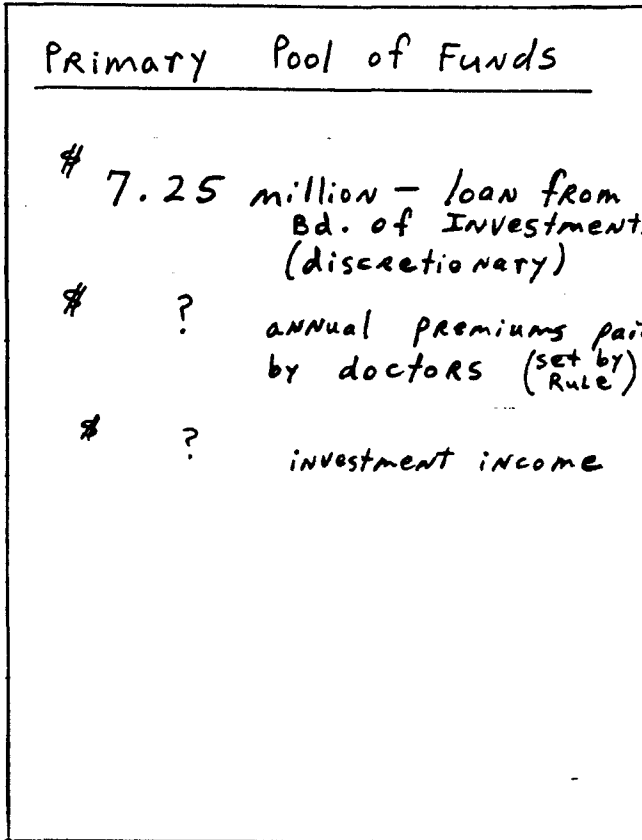 Primary Pool of Funds
$ 7.25 million - loan from
Bd. of Investment
(discretionary)
$ ? annual premiums
by doctors (set by Rule)
$ ? investment income